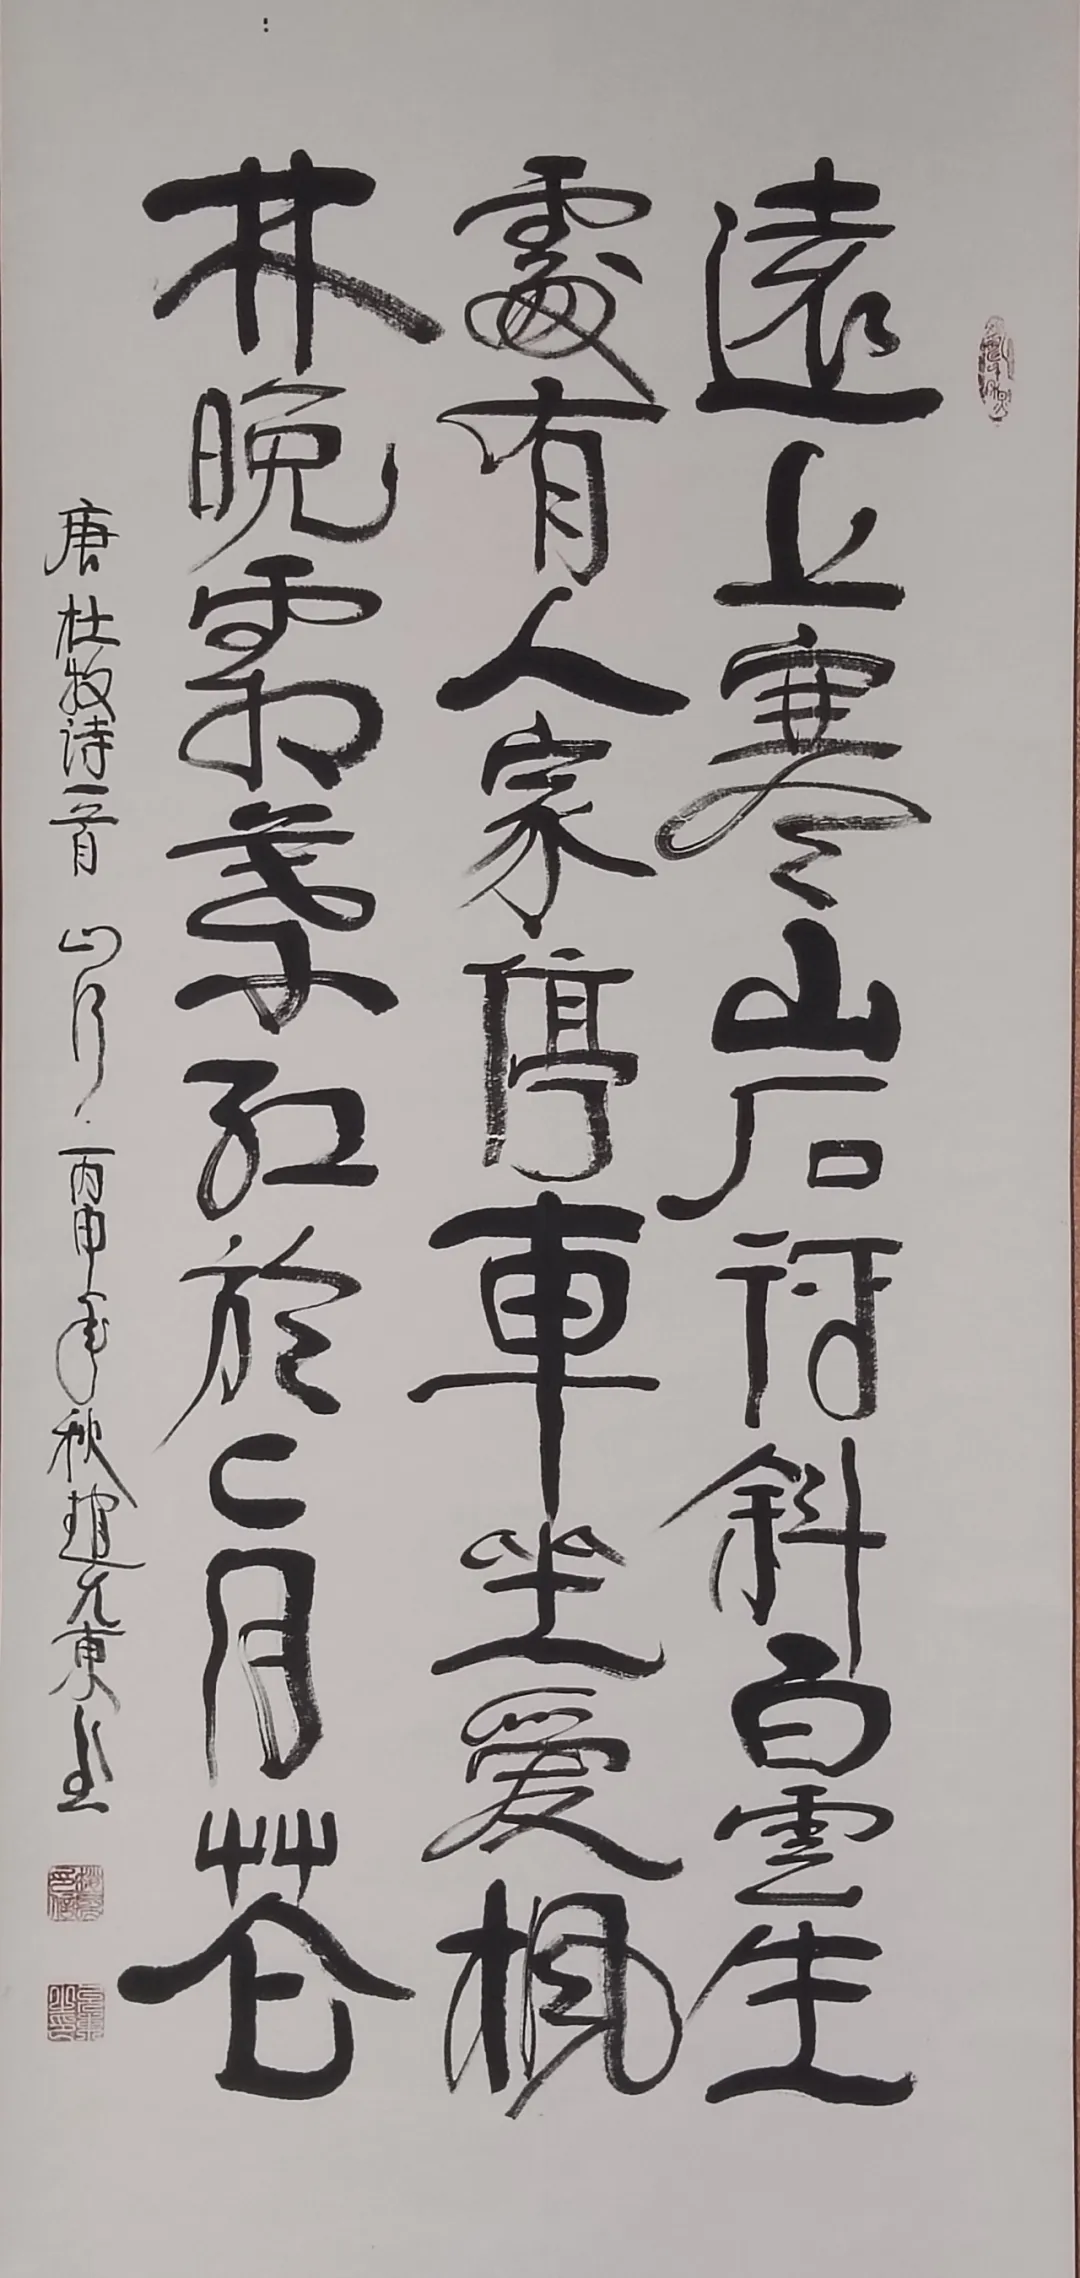 遠上寒山石径斜白雲生
處有人家停車坐愛楓
林晚霜葉紅於二月花
唐杜牧诗一首 山行 丙申年秋趙東书